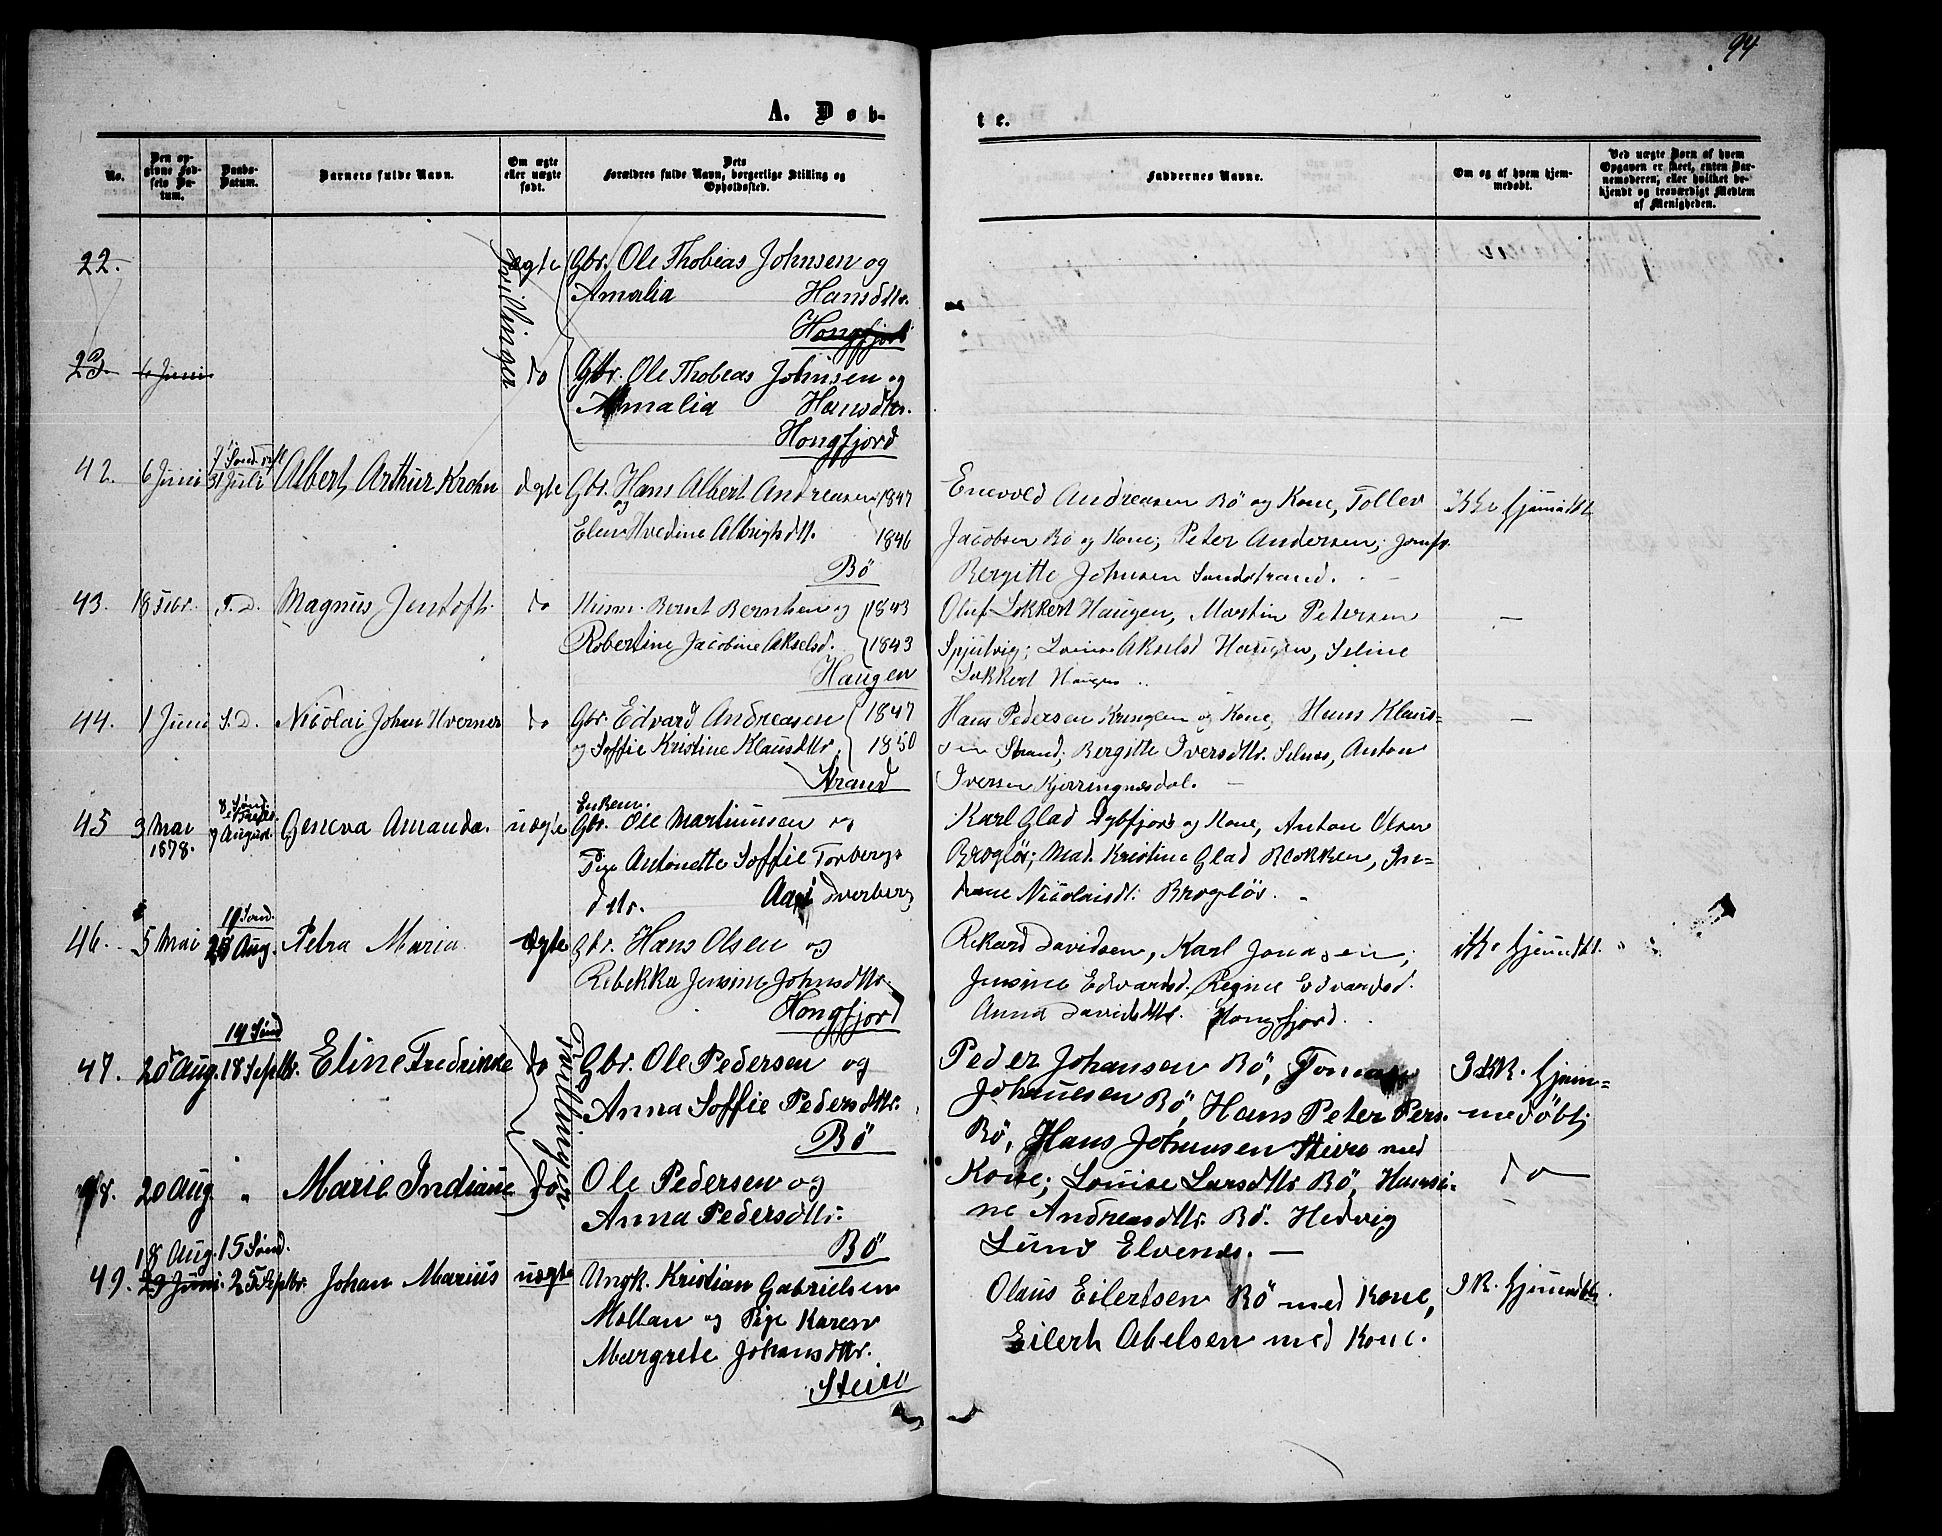 94
A. Døb-
te.
No.
Den opgivne Fødsels Datum.
Daabs-Datum.
Barnets fulde Navn.
Om ægte eller uægte født.
Dets Forældres fulde Navn, borgerlige Stilling og Opholdssted.
Faddernes Navne.
Om og af hvem hjemmedøbt.
Ved uægte Børn af hvem Opgaven er skeet, enten Barnemoderen, eller hvilket bekjendt og troværdigt Medlem af Menigheden.
22. ægte Gbr. Ole Thobias Johnsen og
Amalia Hansdttr.
Hongfjord
Tvillinger
23. 6 Juni do Gbr. Ole Thobias Johnsen og
Amalia Hansdttr.
Hongfjord
42. 6 Juni 31 Juli Albert Arthur Krohn ægte Gbr. Hans Albert Andreasen 1847
og
Elen Hvedine Albrigtsdtt. 1846
Bö
Enevold Andreasen Bö og Kone, Tollev
Jacobsen Bö og Kone; Peter Andersen; Jomfr.
Bergitte Johnsen Sandstrand.
Ikke hjemdbt
43. 18 Febr. S. D. Magnus Jentoft do Husm. Bernt Berntsen og 1843
Robertine Jacobine Akselsd. 1843
Haugen
Oluf Lokkert Haugen, Martin Petersen
Spjutvig; Lovise Akselsd Haugen, Seline
Lokkert Haugen
44. 1 Juni S. D. Nicolai Johan Hverner do Gbr. Edvard Andreasen 1847
og Soffie Kristine Klausdttr. 1850
Strand
Hans Pedersen Kringlen og Kone, Hans Klaus-
sen Strand; Bergitte Iversdttr. Selnes, Anton
Iversen Kjerringnesdal.
45 3 Mai 1878. 8 Sønd. August Geneva Amanda. uægte Enkem.
Gbr. Ole Martinussen og
Pige Antonette Soffie Torbergs-
dttr. Aas Tverberg
Karl Glad Dybfjord og Kone, Anton Olsen
Brogløs; Mad. Kristine Glad Blokken, In-
diane Nicolaisdt. Brogløs.
10 Sønd.
46. 5 Mai Aug. Petra Maria ægte Gbr. Hans Olsen og
Rebekka Jensine Johnsdttr.
Hongfjord
Rikard Davidsen, Karl Jonassen;
Jensine Edvardsd. Regine Edvardsd.
Anna Davidsdttr. Hongfjord.
Ikke hjemdbt.
14 Sønd
47. 20 Aug. 18 Septbr. Eline Fredrikke do Gbr. Ole Pedersen og
Anna Soffie Pedersdttr.
Bö
Tvillinger
Peder Johansen Bö, Tomas
Johnesen Bö, Hans Peter Pers.
Bö, Hans Johnnsen Stiero med
Ikk. hjem-
medöbt
48. 20 Aug. " Marie Indiane do Ole Pedersen og
Anna Pedersdttr.
Bö
Kone; Louise Larsdttr Bö, Hansi-
ne Andreasdttr. Bö. Hedvig
Lund Elvenes.
do
18 Aug. 15 Sønd.
49. 29 Juni. 25 Septbr. Johan Marius uægte Ungk. Kristian Gabrielsen
Mollan og Pige Karen
Margrete Johansdttr.
Steiro
Olaus Eilertsen Bö med Kone,
Eilert Abelsen med Kone.
I K. hjemdbt.